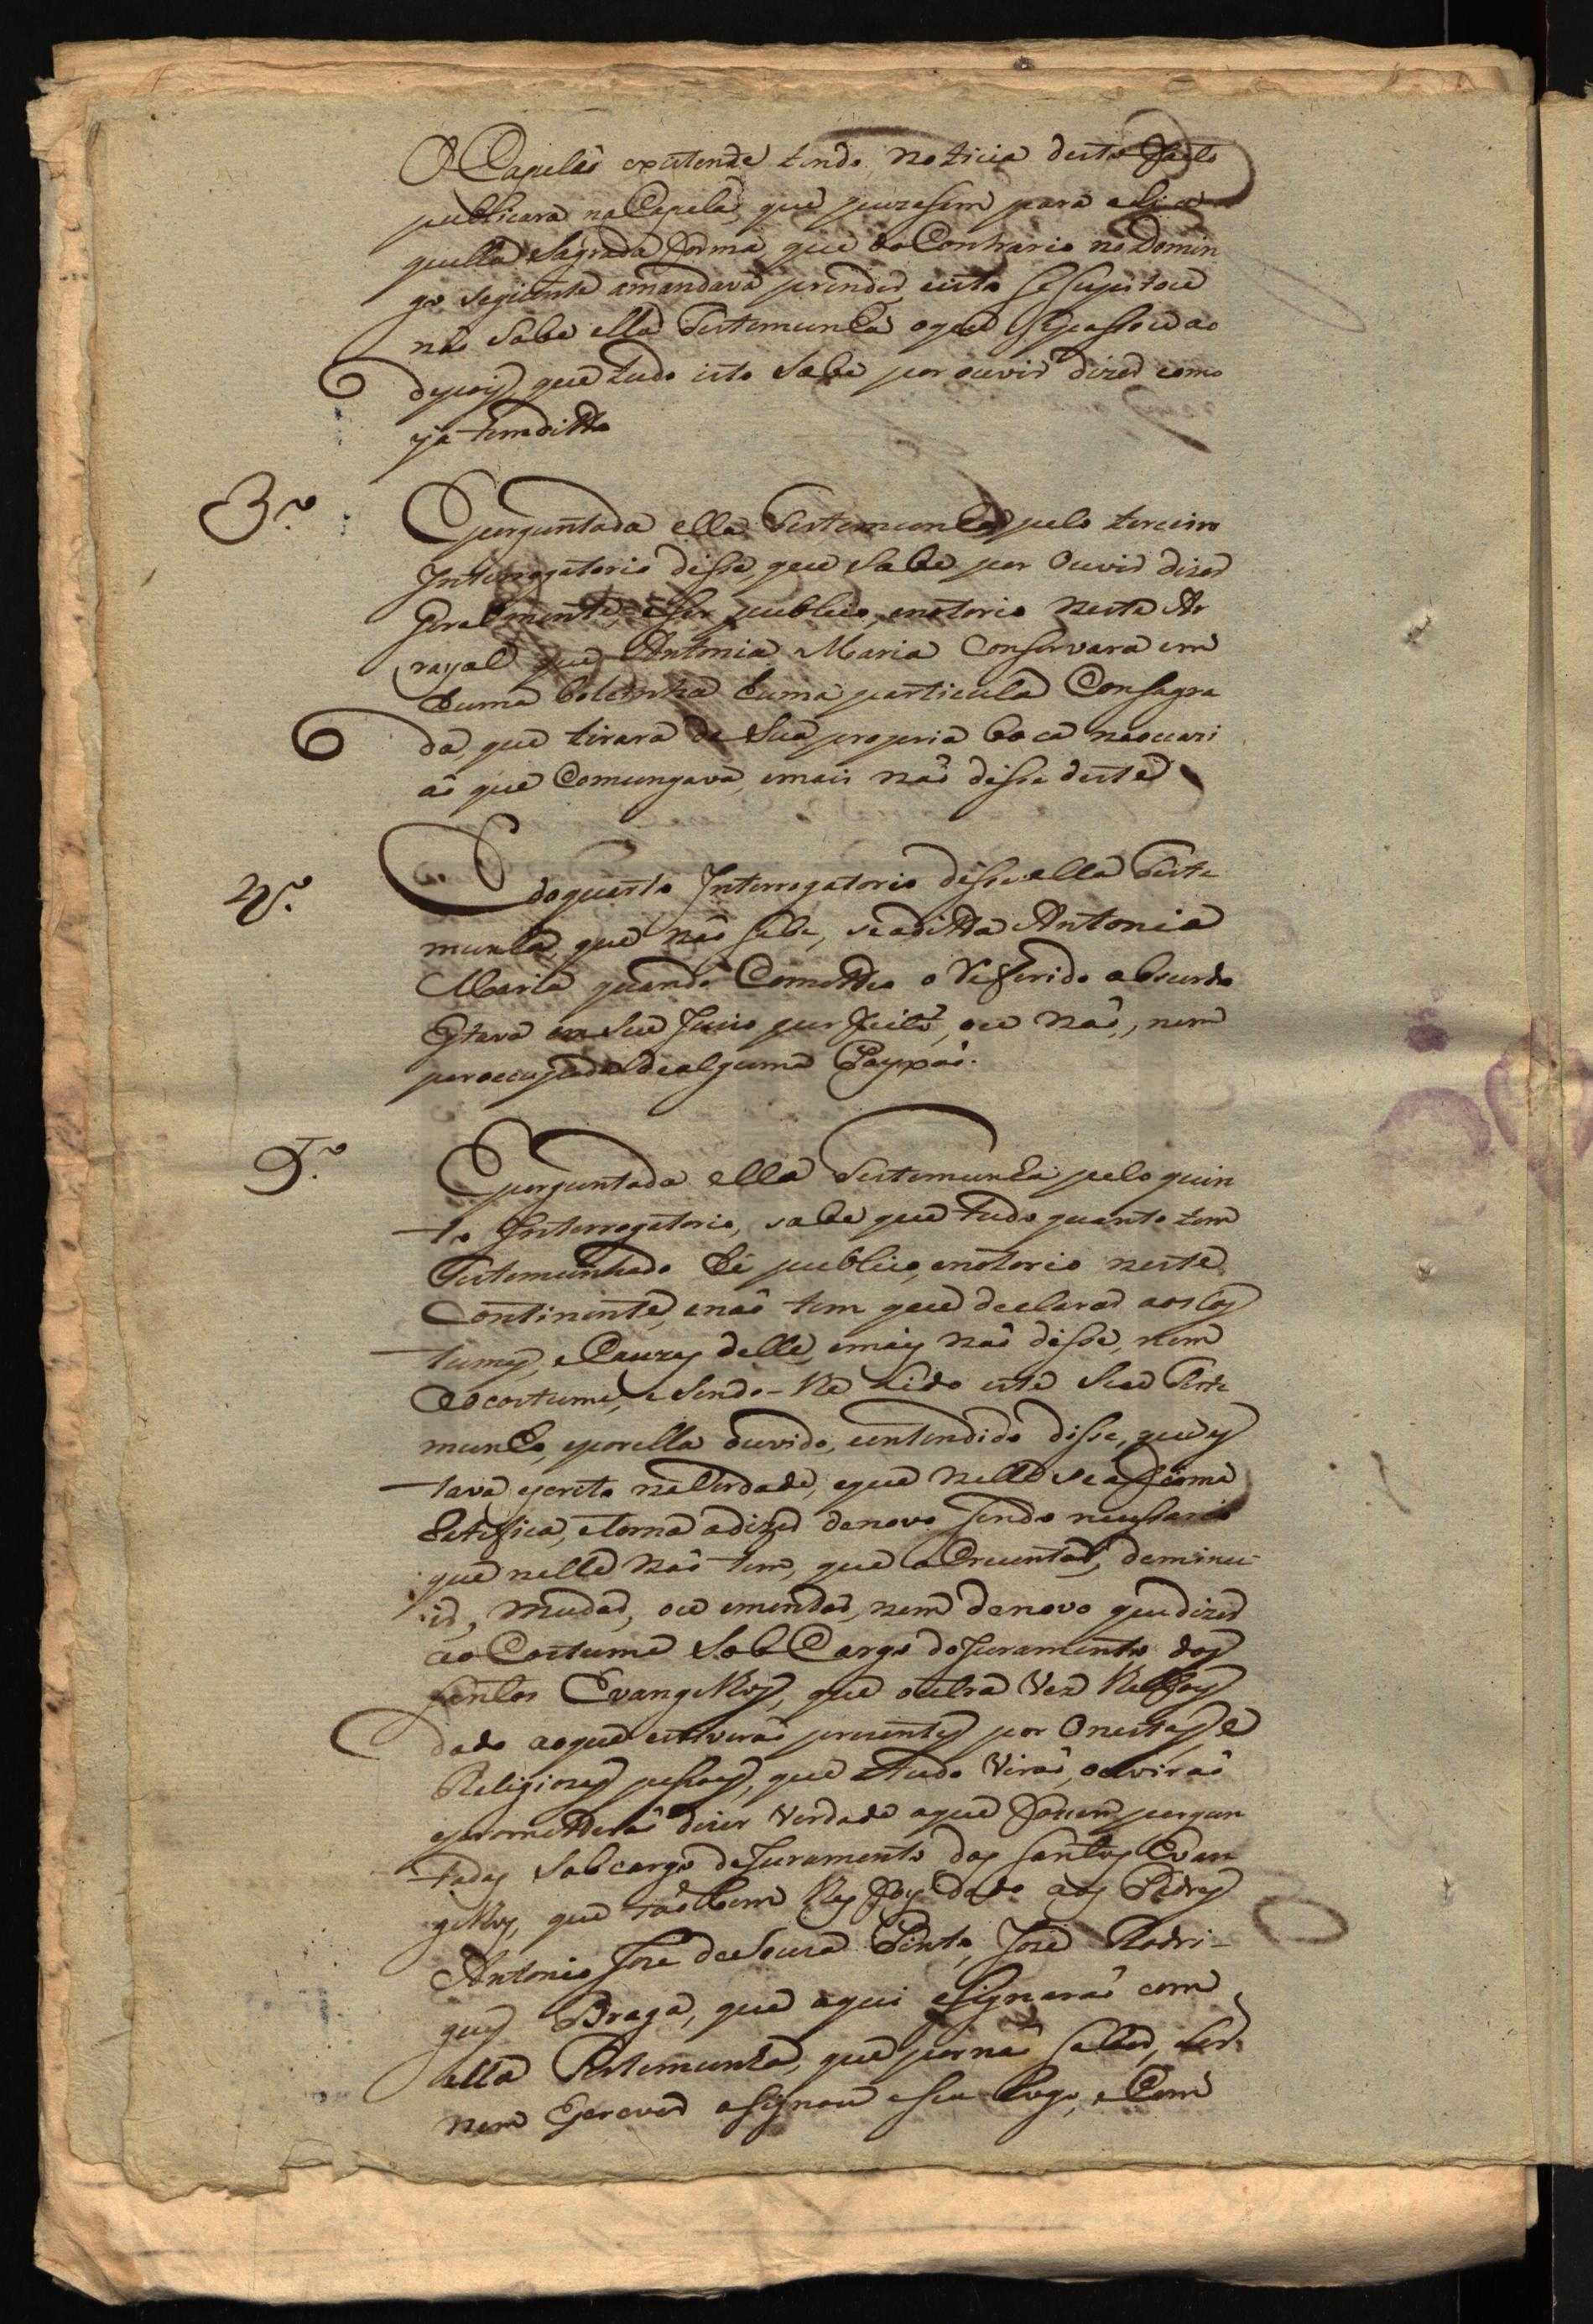 O Capelaõ existente tendo noticia deste facto
publicara na Capela, que puzesem para ali a
quella Sagrada forma que do Contrario no Domin
go seguiente amandava prender, eisto se supitou e
naõ sabe ella Testemunha oque se passou ao
depois que tudo isto sabe por ouvir dizer como
já tem ditto
3.º
E perguntada ella Testemunha pelo terceiro
Interrogatorio disse, que sabe por Ouvir dizer
geralmente, e ser publico, enotorio neste Ar
rayal que Antonia Maria Conservara em
huma bolcinha huma particula Consagra
da, que tirara da sua propria boca na ocazi
aõ que Comungava, emais naõ disse deste
4.º
E do quarto Interrogatorio disse ella Teste
munha, que naõ sabe, se a ditta Antonia
Maria quando Cometteo o Referido absurdo
Estava em seu Juizo perfeito, ou naõ, nem
pereocupada de alguma Payxaõ.
5.º
E perguntada ella Testemunha pelo quin
to Interrogatorio, sabe que tudo quanto tem
Testemunhado hé publico, enotorio neste
Continente, enaõ tem que declarar aos Cos
tumes, e Cauzas delle, emais naõ disse, nem
ao costume, e sendo-lhe Lido este seu Teste
munho, eporella ouvido, eentendido disse, que es
tava escrito na Verdade, eque nelle se afirma
Retefica, e torna adizer denovo sendo necessario
que nelle naõ tem, que acrecentar, deminu
ir, mudar, ou emendar, nem denovo que dizer
ao Costume Sob Cargo do Juramento dos
santos Evangelhos, que outra Vez lhe foy
dado aoque estiveraõ prezentes por Onestas, e
Religiozas pessoas, que tudo Viraõ, eouviraõ
eprometteraõ dizer Verdade aque foscem pergun
tadas Sobcargo deJuramento dos santos Evan
gelhos, que taõbem lhes foy dado aos Padres
Antonio Joze deSouza Pinto, Joze Rodri-
gues Braga, que aqui asignaraõ com
ella Testemunha, que por naõ saber, ler
nem Escrever asignou aseu Rogo, e Com